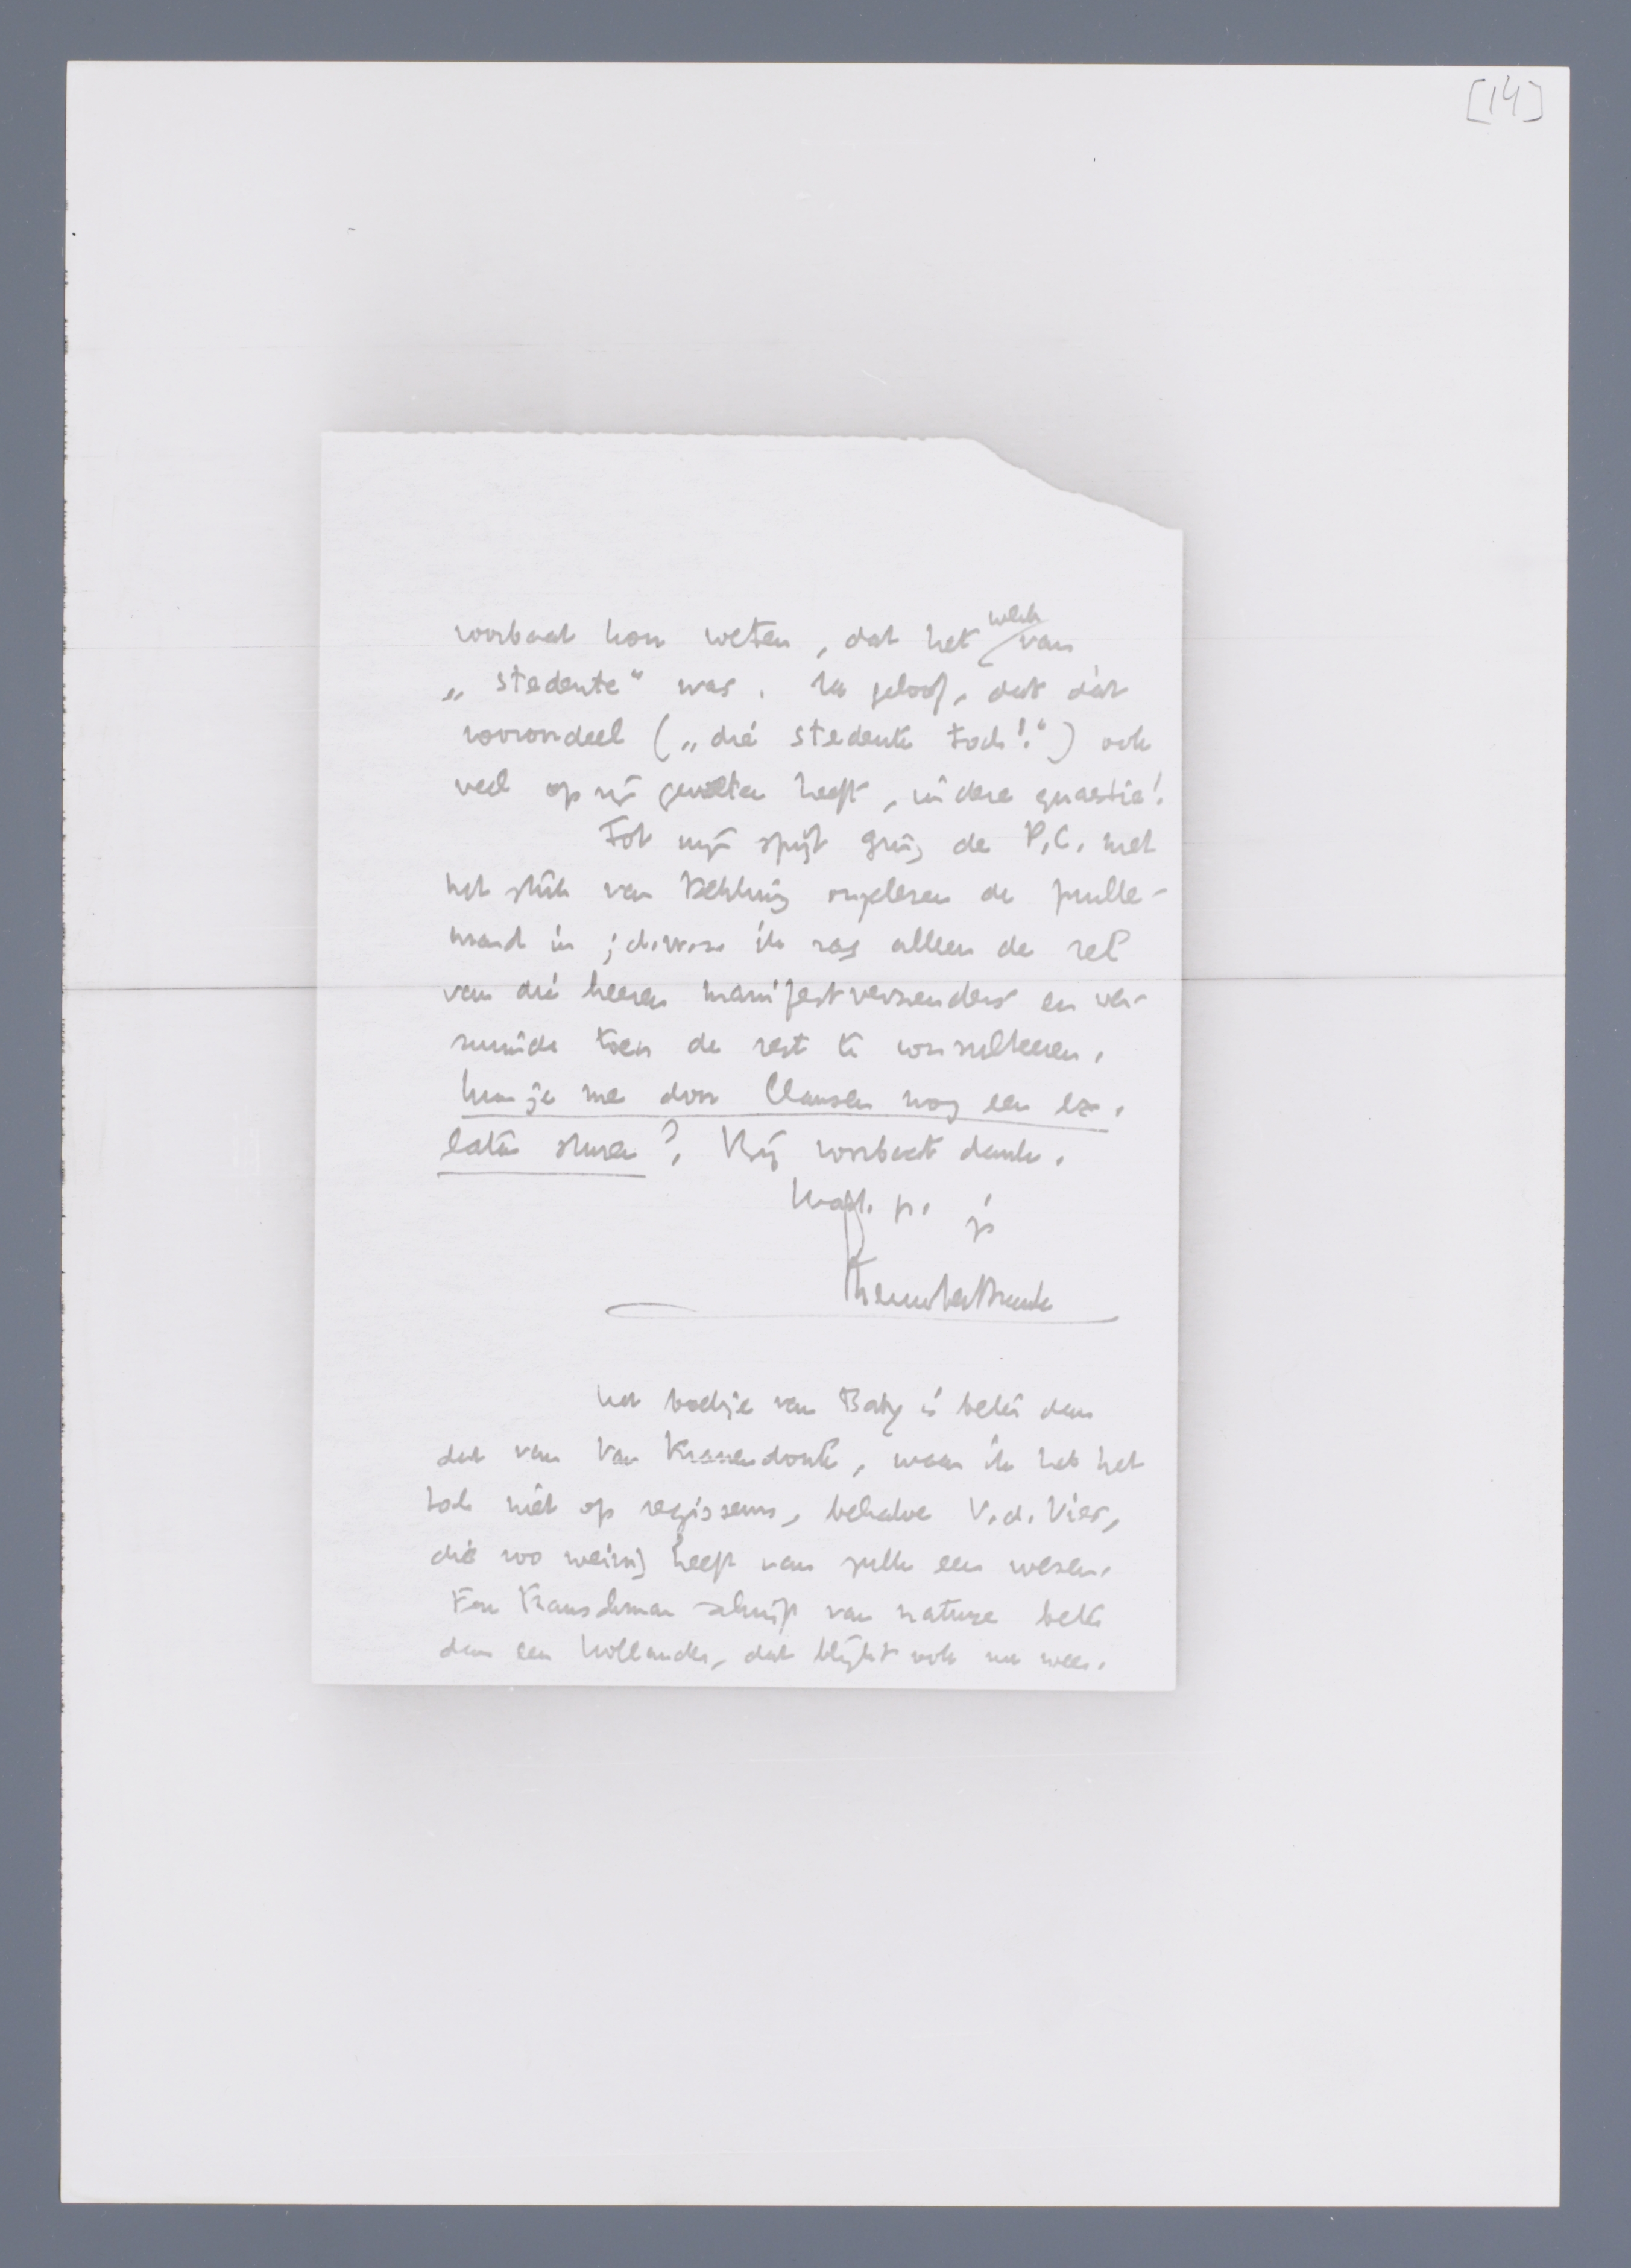 [14]
voorbaat kon weten, dat het werk van
„stedente“ was. Ik geloof, dat dàt
vooroordeel („die stedente toch!“) ook
veel op zijn geweten heeft, in deze quaestie!
Tot mijn spijt ging de P.C. met
het stuk van Behling ongelezen de prulle-
mand in; d.w.z. ik zag alleen de
van die heeren manifestverzenders en ver-
zuimde toen de rest te consulteeren.
Kun je me door Clausen nog een ex.
laten sturen? Bij voorbaat dank.
Hart. gr. je
Menno ter Braak
Het boekje van is beter dan
dat van Van Kranendonk, maar ik heb het
toch niet op regisseurs, behalve V.d. Vies,
die zoo weinig heeft van zulk een wezen.
Een Franschman schrijft van nature beter
dan een Hollander, dat blijkt ook nu weer.